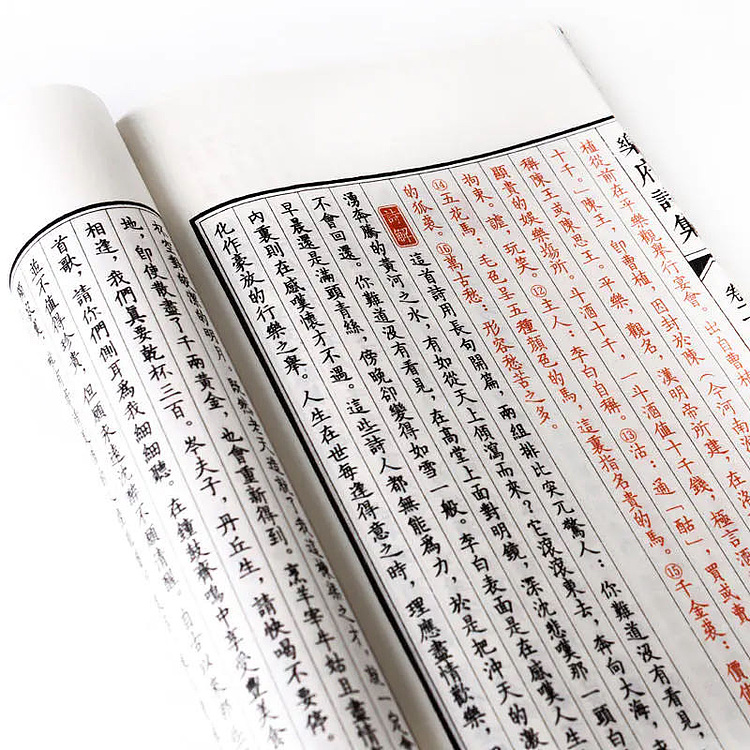 樂府詩集
植從前在平樂觀舉行宴會。出自曹植
十千。」陳王，即曹植，因封於陳（今河南
稱陳王或陳思王。平樂，觀名，漢明帝所建，在洛
顯貴的娛樂場所。斗酒十千，一斗酒值十千錢，極言酒
拘束。謔，玩笑。⑫主人，李白自稱。⑬沽：通「酤」，買或賣
⑭五花馬：毛色呈五種顏色的馬，這裏指名貴的馬。⑮千金裘：價值
的狐裘。⑯萬古愁，形容愁苦之多。
詩解
這首詩用長句開篇，兩組排比突兀驚人：你難道沒有看見，
湧奔騰的黃河之水，有如從天上傾瀉而來？它滾滾東去，奔向大海，
不會回還。你難道沒有看見，在高堂上面對明鏡，深沈悲嘆那一頭白
早晨還是滿頭青絲，傍晚卻變得如雪一般。李白表面是在感嘆人生
內裏則在感嘆懷才不遇。這些詩人都無能為力，於是把沖天的激
化作豪放的行樂之舉。人生在世每逢得意之時，理應盡情歡樂，
的明月，
地，即使散盡了千兩黃金，也會重新得到。烹羊宰牛姑且盡情
相逢，我們真要乾杯三百。岑夫子，丹丘生，請快喝不要停。
首歌，請你們側耳為我細細聽。在鐘鼓齊鳴中享受豐美食
並不值得珍貴，但願永遠沈醉不願清醒。自古以來